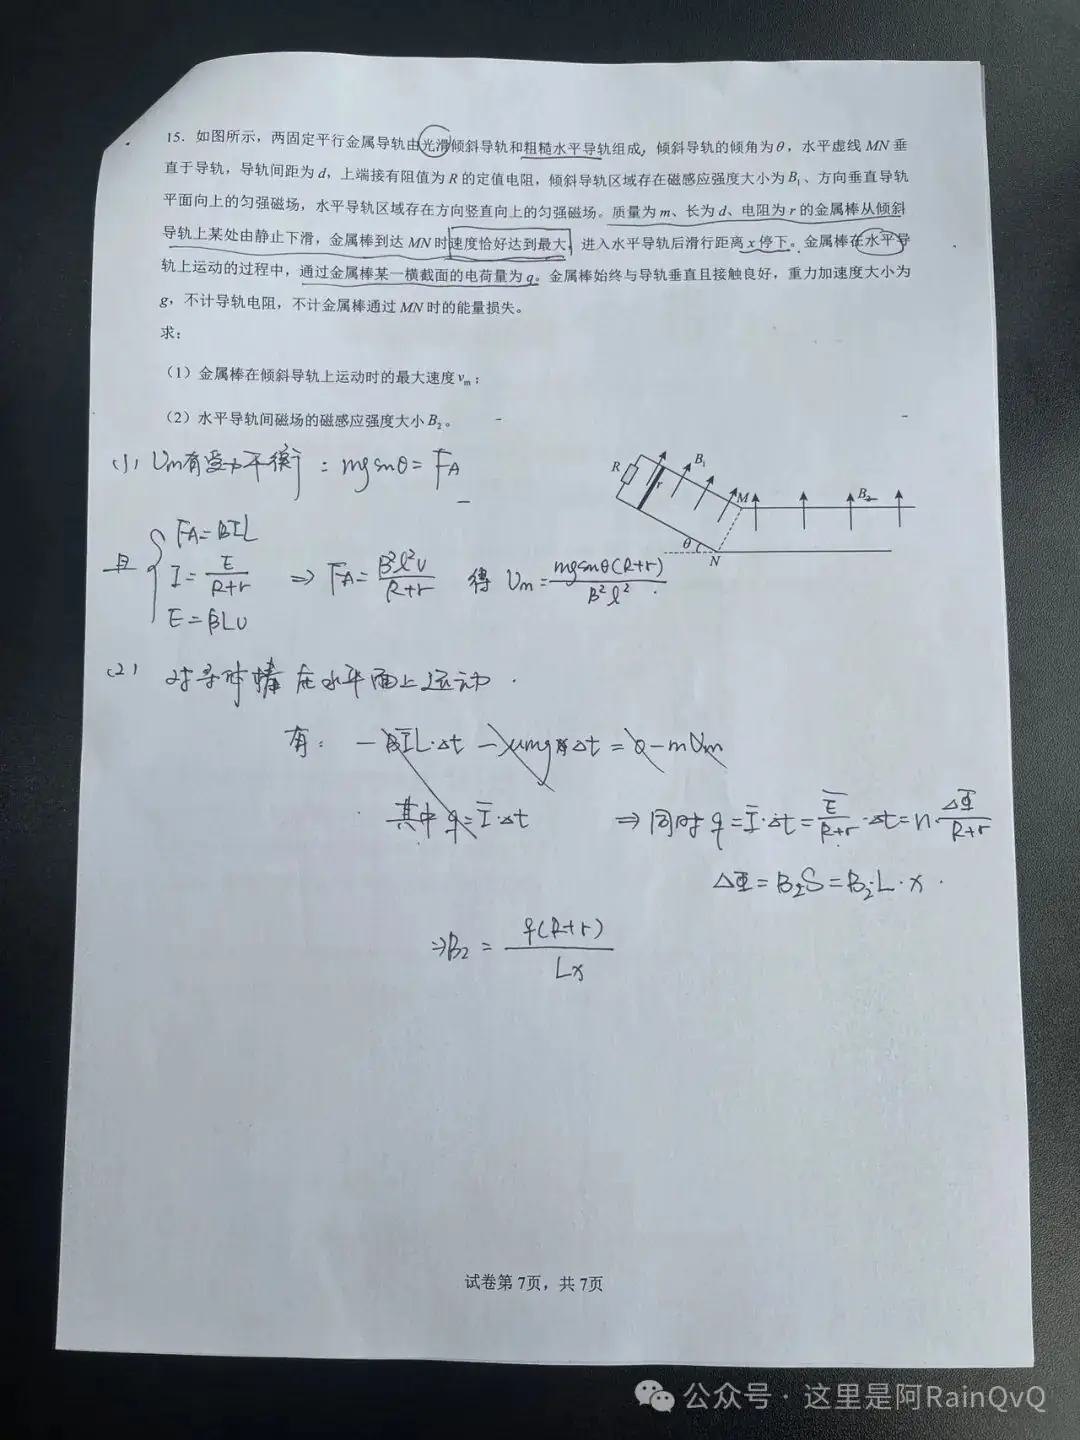 15. 如图所示，两固定平行金属导轨由光滑倾斜导轨和粗糙水平导轨组成，倾斜导轨的倾角为θ，水平虚线MN垂
直于导轨，导轨间距为d，上端接有阻值为R的定值电阻，倾斜导轨区域存在磁感应强度大小为B₁、方向垂直导轨
平面向上的匀强磁场，水平导轨区域存在方向竖直向上的匀强磁场。质量为m、长为d、电阻为r的金属棒从倾斜
导轨上某处由静止下滑，金属棒到达MN时速度恰好达到最大，进入水平导轨后滑行距离x停下。金属棒在水平导
轨上运动的过程中，通过金属棒某一横截面的电荷量为q。金属棒始终与导轨垂直且接触良好，重力加速度大小为
g，不计导轨电阻，不计金属棒通过MN时的能量损失。
求：
（1）金属棒在倾斜导轨上运动时的最大速度vₘ；
（2）水平导轨间磁场的磁感应强度大小B₂。
R r B₁ M B₂ θ N
(1) Um有受力平衡：mgsinθ=FA
且 { FA=BIL
I=E/(R+r) ⇒ FA=B²l²v/(R+r) 得 Um=mgsinθ(R+r)/B²l²
E=BLv
(2) 对导体棒在水平面上运动.
有：-BĪL·Δt - μmg Δt = 0-mUm
其中 q=Ī·Δt ⇒ 同时 q=Ī·Δt=Ē/(R+r)·Δt=n·ΔΦ/(R+r)
ΔΦ=B₂S=B₂·L·x.
⇒B₂ = q(R+r)/Lx
试卷第7页，共7页
公众号·这里是阿RainQvQ